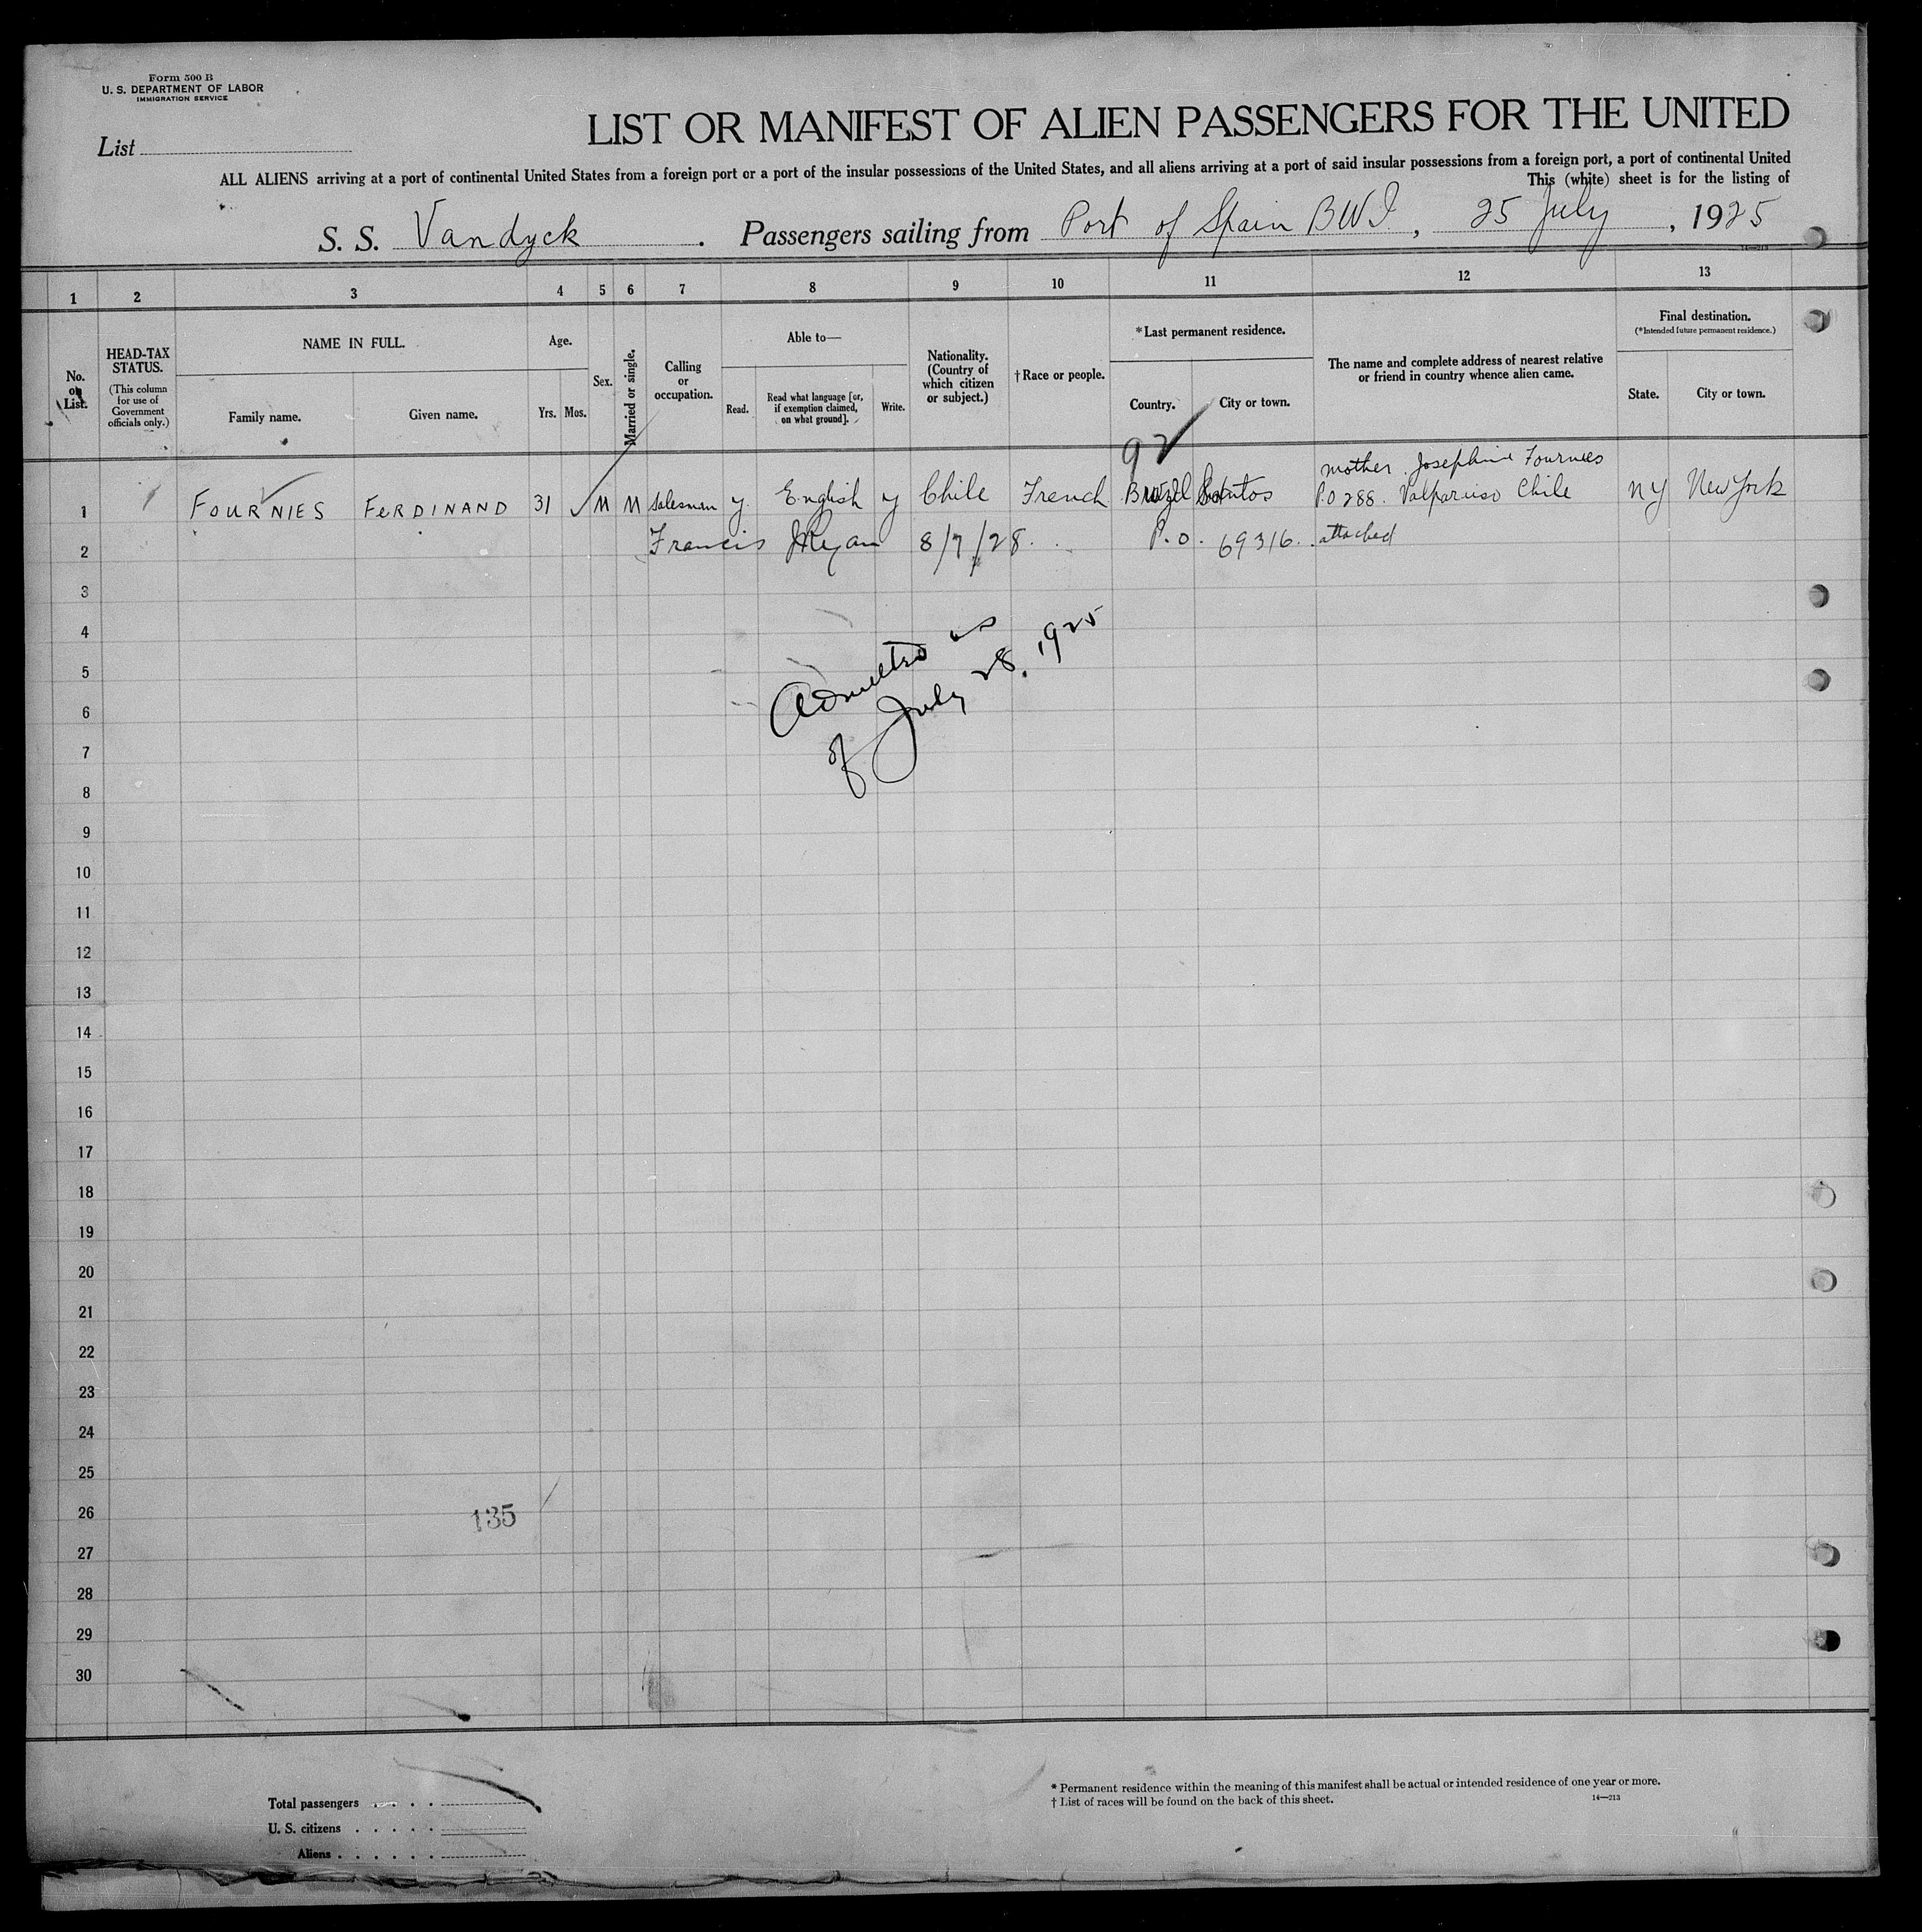 Form 500 B
U. S. DEPARTMENT OF LABOR
IMMIGRATION SERVICE
List
LIST OR MANIFEST OF ALIEN PASSENGERS FOR THE UNITED
ALL ALIENS arriving at a port of continental United States from a foreign port or a port of the insular possessions of the United States, and all aliens arriving at a port of said insular possessions from a foreign port, a port of continental United
This (white) sheet is for the listing of
S. S. Vandyck. Passengers sailing from Port of Spain BWI, 25 July, 1925
14—213
1 2 3 4 5 6 7 8 9 10 11 12 13
No. on List.
HEAD-TAX STATUS.
(This column for use of Government officials only.)
NAME IN FULL.
Family name. Given name.
Age.
Yrs. Mos.
Sex.
Married or single.
Calling or occupation.
Able to—
Read. Read what language [or, if exemption claimed, on what ground]. Write.
Nationality. (Country of which citizen or subject.)
† Race or people.
*Last permanent residence.
Country. City or town.
The name and complete address of nearest relative or friend in country whence alien came.
Final destination.
(*Intended future permanent residence.)
State. City or town.
92
mother Josephine Fournies
1 FOURNIES FERDINAND 31 M M Salesman y English y Chile French Brazil Santos P.O 288. Valparaiso Chile NY New York
2 Francis 8/7/28. P.O. 69316. attached
3
4
Admitted as
of July 28, 1925
5
6
7
8
9
10
11
12
13
14
15
16
17
18
19
20
21
22
23
24
25
26
135
27
28
29
30
Total passengers
U. S. citizens
Aliens
* Permanent residence within the meaning of this manifest shall be actual or intended residence of one year or more.
† List of races will be found on the back of this sheet.
14—213